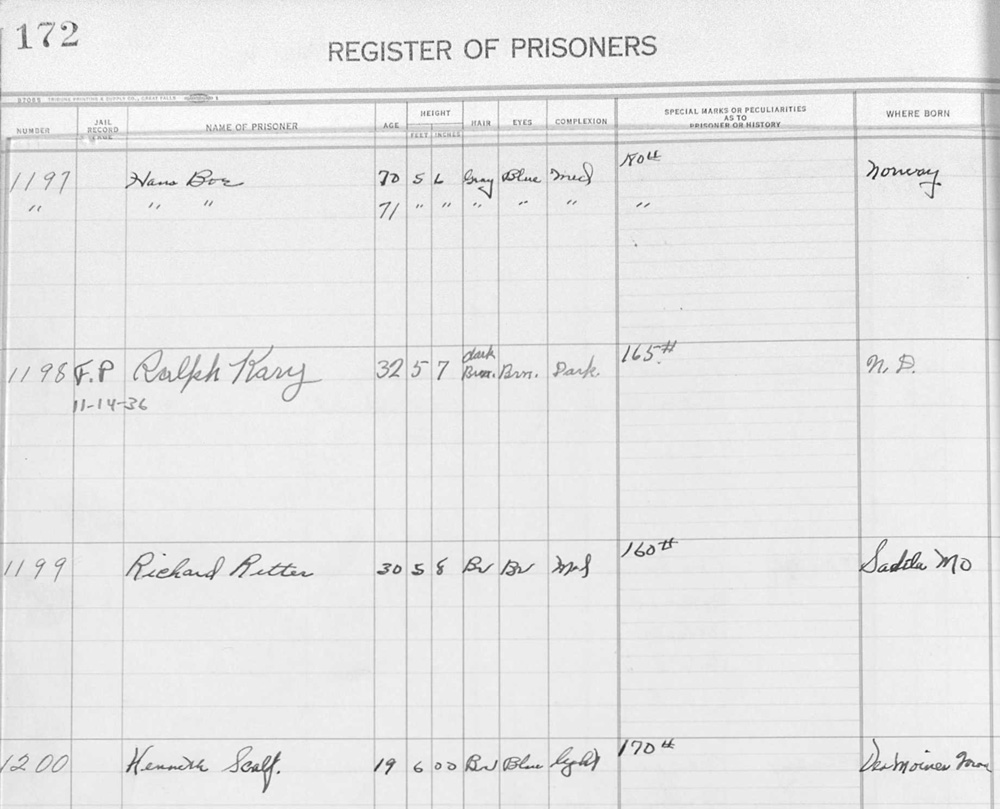 172
REGISTER OF PRISONERS
97085 TRIBUNE PRINTING & SUPPLY CO., GREAT FALLS
NUMBER JAIL RECORD PAGE NAME OF PRISONER AGE HEIGHT FEET INCHES HAIR EYES COMPLEXION SPECIAL MARKS OR PECULIARITIES AS TO PRISONER OR HISTORY WHERE BORN
1197 Hans Boe 70 5 6 Gray Blue Med 180# Norway
" " " 71 " " " " " "
1198 F.P Ralph Kary 32 5 7 dark Brn. Brn. Dark 165# N. D.
11-14-36
1199 Richard Ritter 30 5 8 Br Br Med 160# Mo
1200 Scalf. 19 6 00 Br Blue light 170# Des Moines Iowa